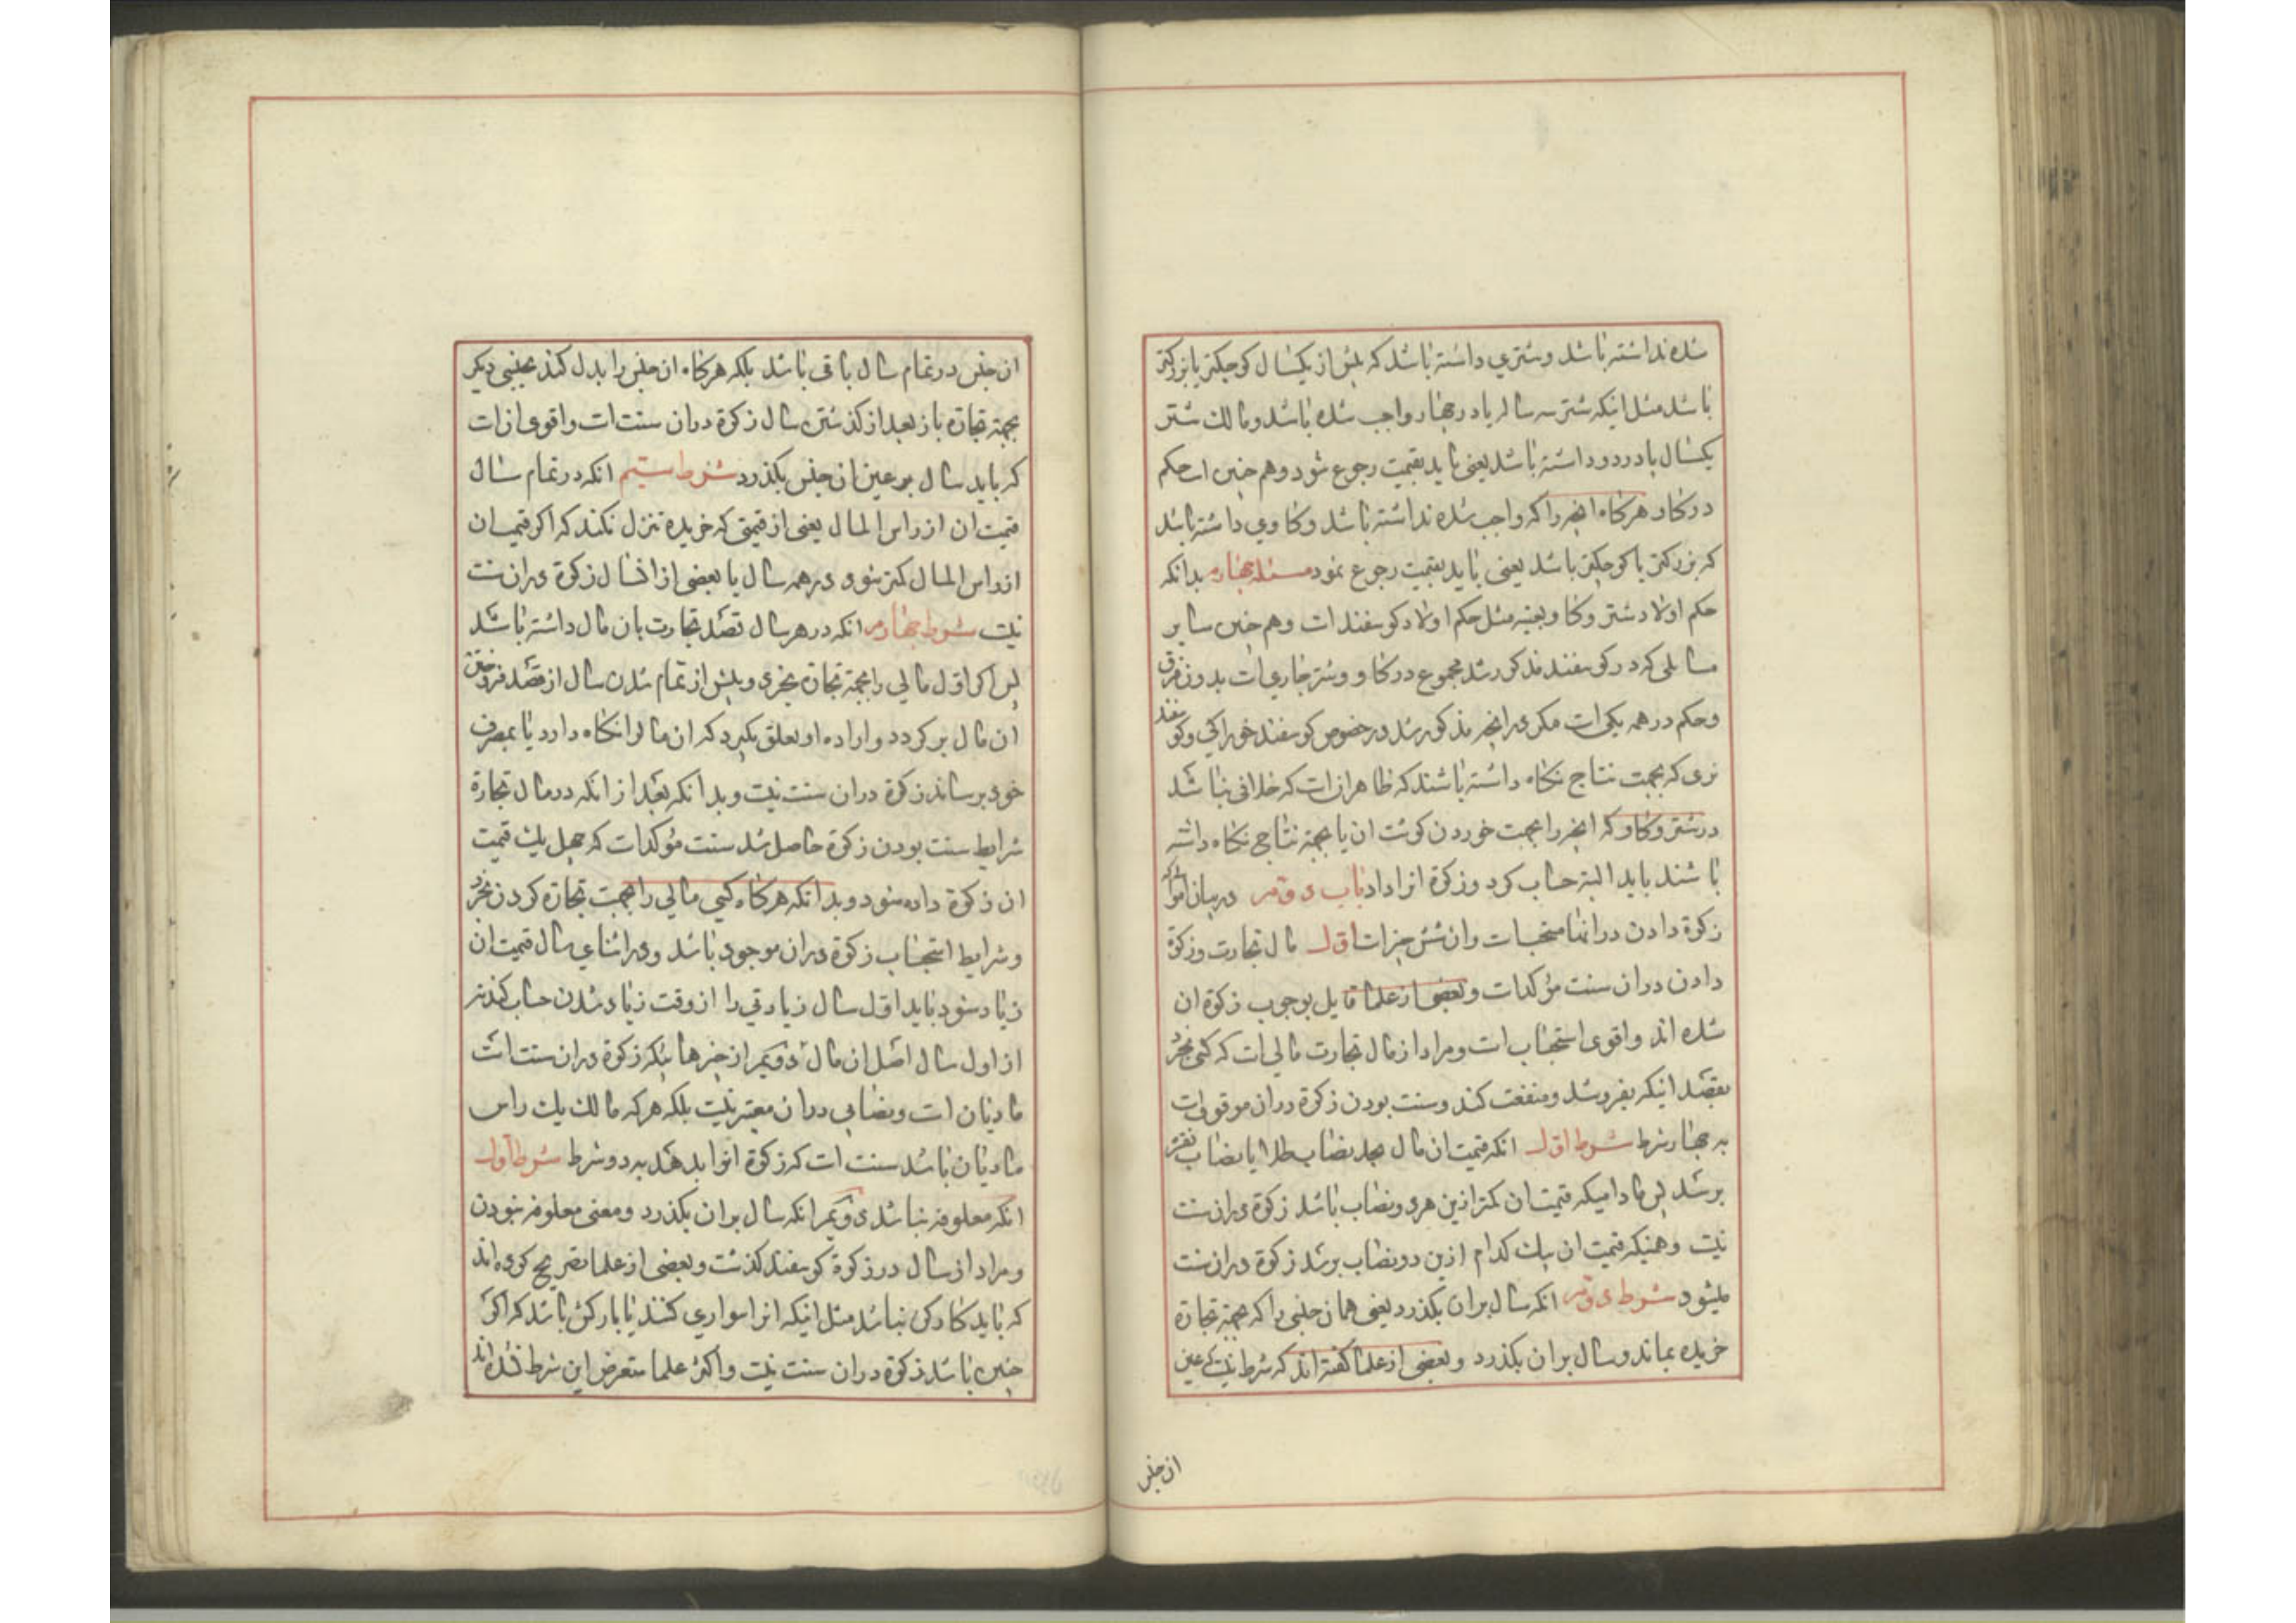 شده نداشته باشد وشتری داشته باشد که بیش از یکسال کوچکتر یا بزرکتر
باشد مثل اینکه شتر سه ساله یا در چهار واجب شده باشد ومالک شتر
یکسال یا در دو داشته باشد یعنی باید بقیمت رجوع شود وهم چنین است حکم
در کاو هرکاه انچه را که واجب شده نداشته باشد وکاوی داشته باشد
که بزرکتر یا کوچکتر باشد یعنی باید بقیمت رجوع نمود مسئله چهارم بدانکه
حکم اولاد شتر وکاو بعینه مثل حکم اولاد کوسفند است وهم چنین سایر
مسائلی که در کوسفند مذکور شد مجموع در کاو وشتر جاری است بدون فرق
وحکم در همه یکی است مکر در انچه مذکور شد در خصوص کوسفند خوراکی وکوسفند
نری که بجهت نتاج نکاه داشته باشند که ظاهر انست که خلافی نباشد
در شتر وکاو که انچه را بجهت خوردن کوشت ان یا بجهة نتاج نکاه داشته
باشند باید البته حساب کرد وزکوة انرا داد باب دوم در بیان اموالی که
زکوة دادن در انها مستحب است وان شش چیز است اول مال تجارت وزکوة
دادن دران سنت مؤکد است وبعضی از علما قایل بوجوب زکوة ان
شده اند واقوی استحباب است ومراد از مال تجارت مالی است که کسی بخرد
بقصد اینکه بفروشد ومنفعت کند وسنت بودن زکوة دران موقوف است
به چهار شرط شرط اول انکه قیمت ان مال بحد نصاب طلا یا نصاب نقره
برسد پس مادامیکه قیمت ان کمتر ازین هر دو نصاب باشد زکوة دران سنت
نیست وهمینکه قیمت ان بیک کدام ازین دو نصاب برسد زکوة دران سنت
میشود شرط دوم انکه سال بران بکذرد یعنی همان جنسی را که بجهة تجارة
خریده بماند وسال بران بکذرد وبعضی از علما کفته اند که شرط نیست که عین
ان جنس
ان جنس در تمام سال باقی باشد بلکه هرکاه ان جنس را بدل کند بجنسی دیکر
بجهة تجارة باز بعد از کذشتن سال زکوة دران سنت است واقوی انست
که باید سال بر عین ان جنس بکذرد شرط سیم انکه در تمام سال
قیمت ان از راس المال یعنی از قیمتی که خریده تنزل نکند که اکر قیمت ان
از راس المال کمتر شود در همه سال یا بعضی از انسال زکوة دران سنت
نیست شرط چهارم انکه در هر سال قصد تجارت بان مال داشته باشد
پس اکر اول مالی را بجهة تجارة بخرد وپیش از تمام شدن سال از قصد فروختن
ان مال بر کردد واراده او تعلق بکیرد که ان مال را نکاه دارد یا بمصرف
خود برساند زکوة دران سنت نیست وبدانکه بعد از انکه در مال تجارة
شرایط سنت بودن زکوة حاصل شد سنت مؤکد است که چهل یک قیمت
ان زکوة داده شود وبدانکه هرکاه کسی مالی را بجهت تجارة کردن بخرد
وشرایط استحباب زکوة دران موجود باشد ودر اثنای سال قیمت ان
زیاد شود باید اول سال زیادتی را از وقت زیاد شدن حساب کند نه
از اول سال اصل ان مال دویم از چیزها ئیکه زکوة دران سنت است
مادیان است ونصابی دران معتبر نیست بلکه هر که مالک یک راس
مادیان باشد سنت است که زکوة انرا بدهد به دو شرط شرط اول
انکه معلوفه نباشد دویم انکه سال بران بکذرد ومعنی معلوفه نبودن
ومراد از سال در زکوة کوسفند کذشت وبعضی از علما تصریح کرده اند
که باید کارکن نباشد مثل اینکه انرا سواری کنند یا بارکش باشد که اکر
چنین باشد زکوة دران سنت نیست واکثر علما متعرض این شرط نشده اند